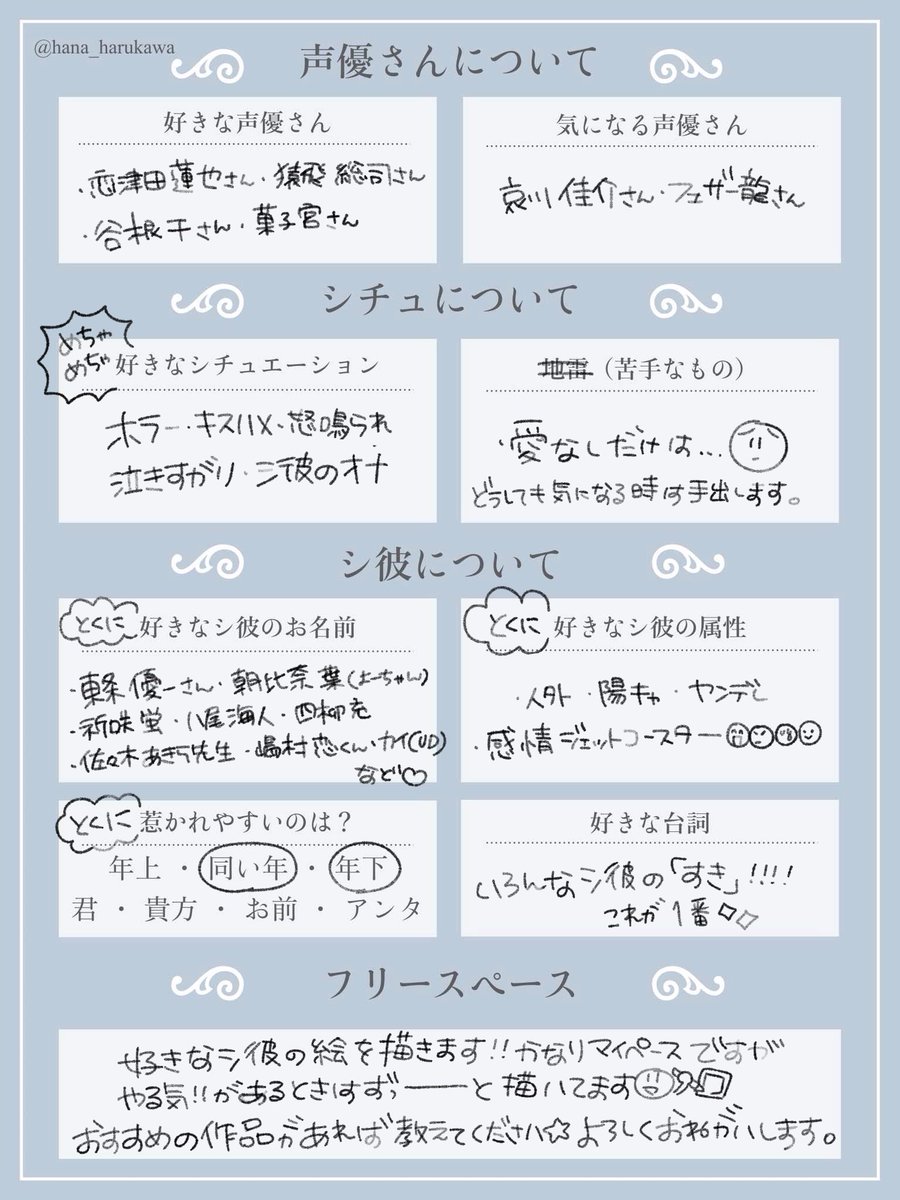 @hana_harukawa
声優さんについて
好きな声優さん
・恋津田蓮也さん・猿飛総司さん
・谷根千さん・菓子宮さん
気になる声優さん
哀川佳介さん・フェザー龍さん
シチュについて
めちゃ
めちゃ
好きなシチュエーション
ホラー・キスハメ・怒鳴られ
泣きすがり・シ彼のオナ
地雷（苦手なもの）
・愛なしだけは…
どうしても気になる時は手出します。
シ彼について
とくに
好きなシ彼のお名前
・東条優一さん・朝比奈葉(よーちゃん)
・新咲蛍・八尾海人・四柳充
・佐々木あきら先生・嶋村恋くん・カイ(UD)
など♡
とくに
好きなシ彼の属性
・人外・陽キャ・ヤンデレ
・感情ジェットコースター
とくに
惹かれやすいのは？
年上・同い年・年下
君・貴方・お前・アンタ
好きな台詞
いろんなシ彼の「すき」!!!!
これが1番
フリースペース
好きなシ彼の絵を描きます!!かなりマイペースですが
やる気!!があるときはずっ———と描いてます
おすすめの作品があれば教えてください☆よろしくおねがいします。